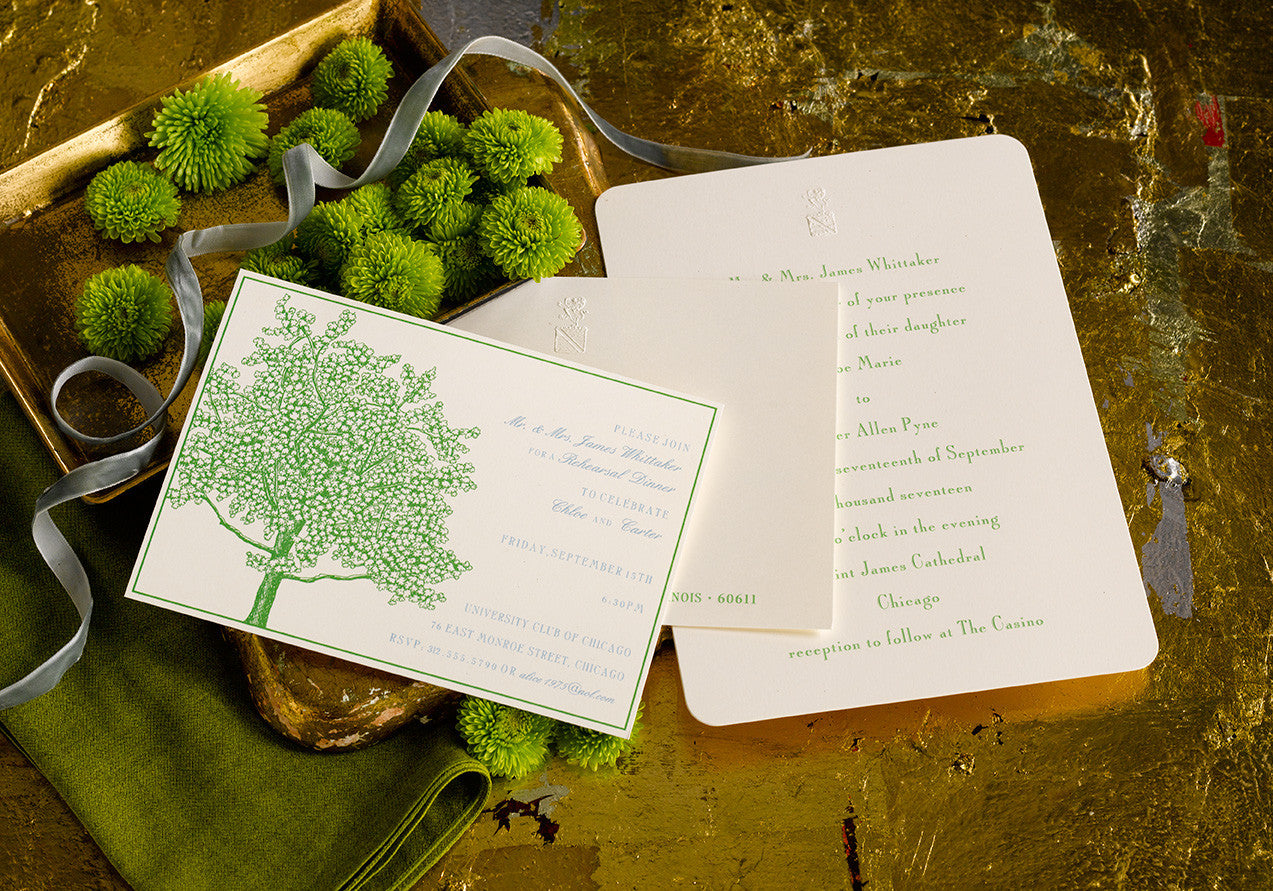 PLEASE JOIN
Mr. & Mrs. James Whittaker
FOR A Rehearsal Dinner
TO CELEBRATE
Chloe AND Carter
FRIDAY, SEPTEMBER 15TH
6:30PM
UNIVERSITY CLUB OF CHICAGO
76 EAST MONROE STREET, CHICAGO
RSVP, 312.555.5790 OR alice1975@aol.com
NOIS • 60611
Mr. & Mrs. James Whittaker
of your presence
of their daughter
oe Marie
to
er Allen Pyne
seventeenth of September
housand seventeen
o'clock in the evening
int James Cathedral
Chicago
reception to follow at The Casino